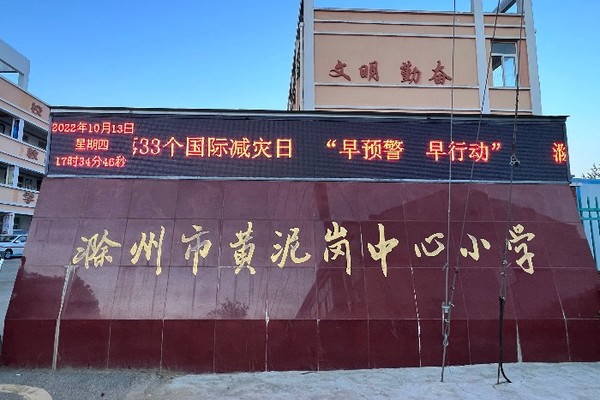 文明 勤奋
2022年10月13日
星期四
17时34分46秒
33个国际减灾日 “早预警 早行动”
滁州市黄泥岗中心小学